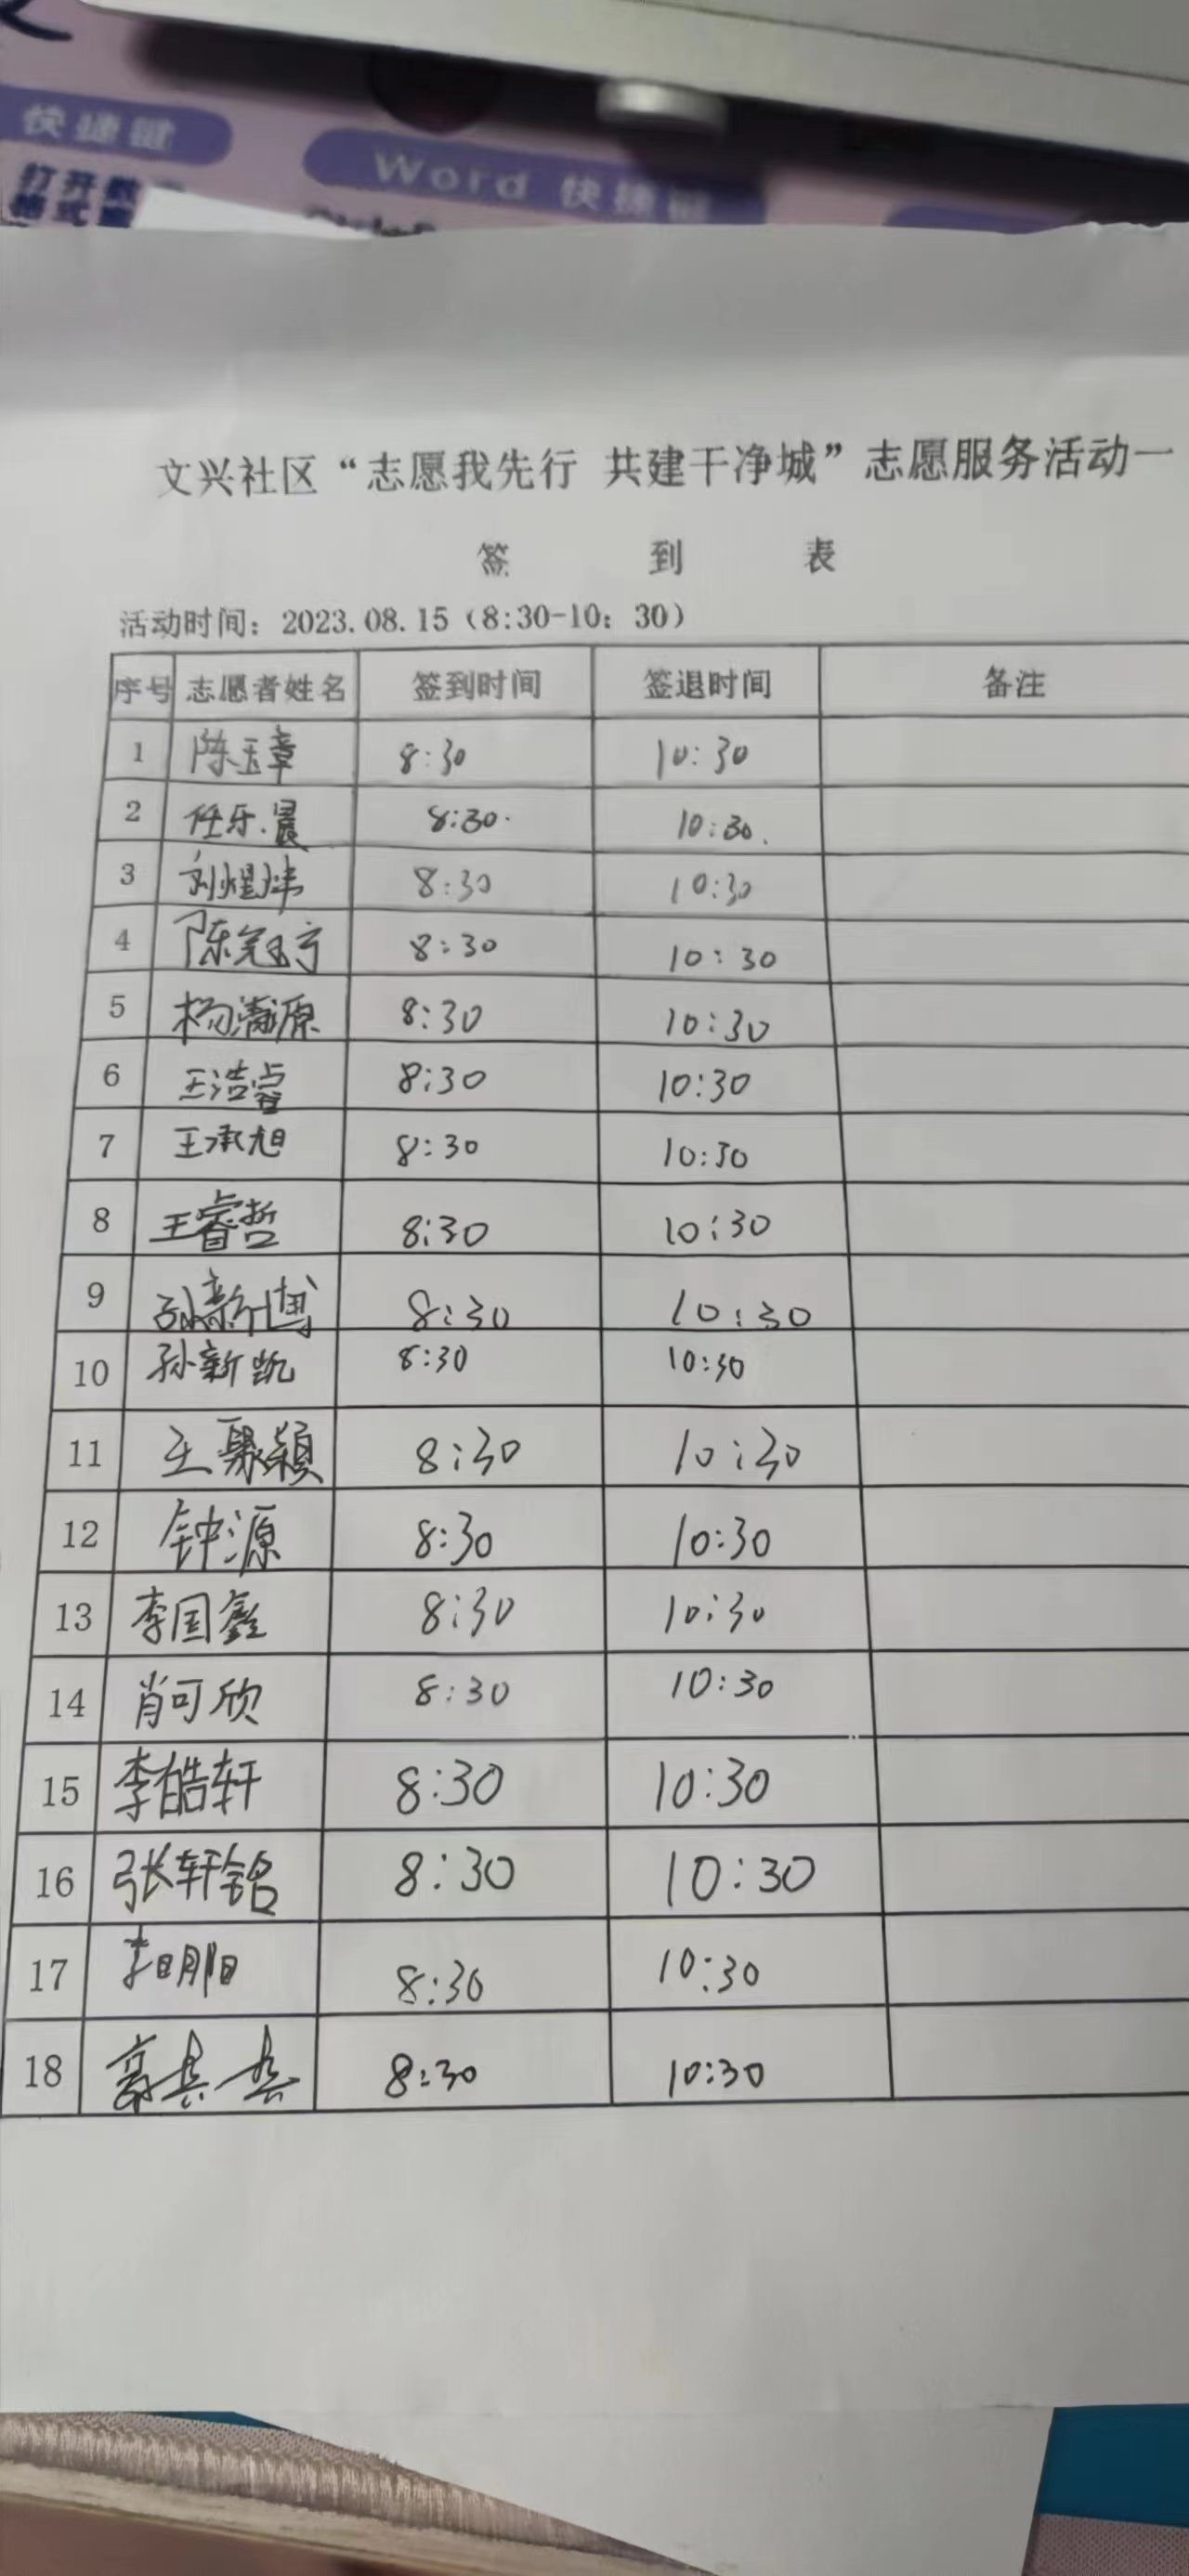 快捷键
Word 快捷键
打开数
格式窗
文兴社区“志愿我先行 共建干净城”志愿服务活动一
签 到 表
活动时间：2023.08.15（8:30-10：30）
序号 志愿者姓名 签到时间 签退时间 备注
1 陈玉章 8:30 10:30
2 任乐晨 8:30 10:30
3 刘煜玮 8:30 10:30
4 陈冠宇 8:30 10:30
5 杨潇源 8:30 10:30
6 王浩睿 8:30 10:30
7 王承旭 8:30 10:30
8 王睿哲 8:30 10:30
9 孙新博 8:30 10:30
10 孙新凯 8:30 10:30
11 王聚颖 8:30 10:30
12 钟源 8:30 10:30
13 李国鑫 8:30 10:30
14 肖可欣 8:30 10:30
15 李皓轩 8:30 10:30
16 张轩铭 8:30 10:30
17 8:30 10:30
18 8:30 10:30